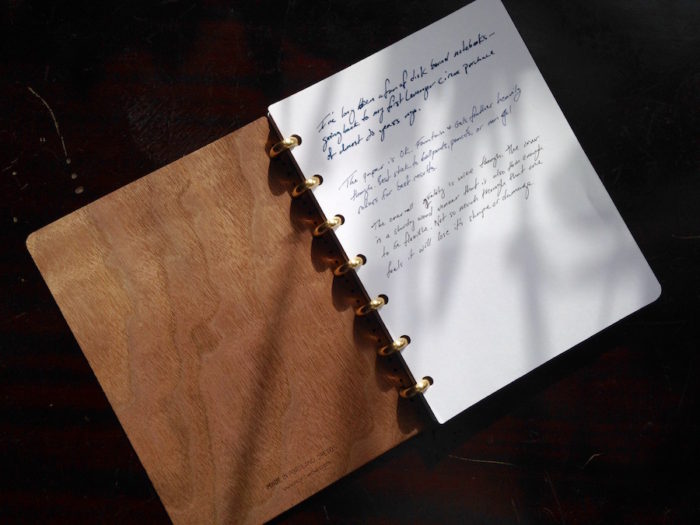 I've long been a fan of disk bound notebooks -
going back to my first Levenger circa purchase
of almost 20 years ago.
The paper is OK. Fountain + gels feather heavily
though. Best stick to ballpoints, pencils, or
for best results.
The overall quality is nice though. The cover
is a sturdy wood veneer that is also thin enough
to be flexible. Not so much though that one
feels it will lose its shape or damage.
MADE IN PORTLAND, OREGON